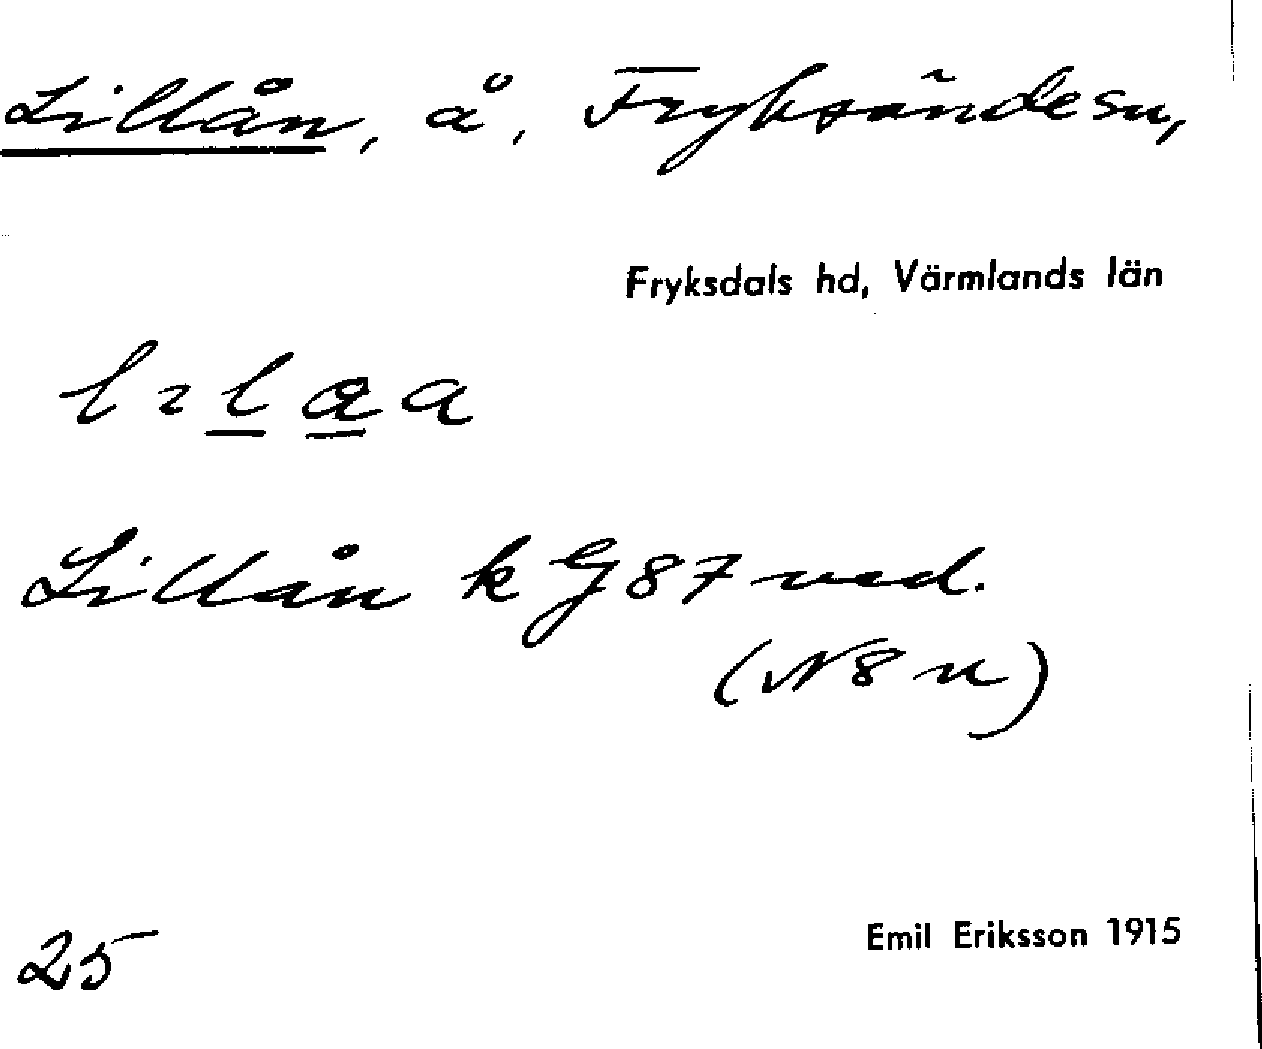 Lillån, å, Fryksände sn,
Fryksdals hd, Värmlands län
Lillån k G 87 ved.
(N 8 n)
25
Emil Eriksson 1915